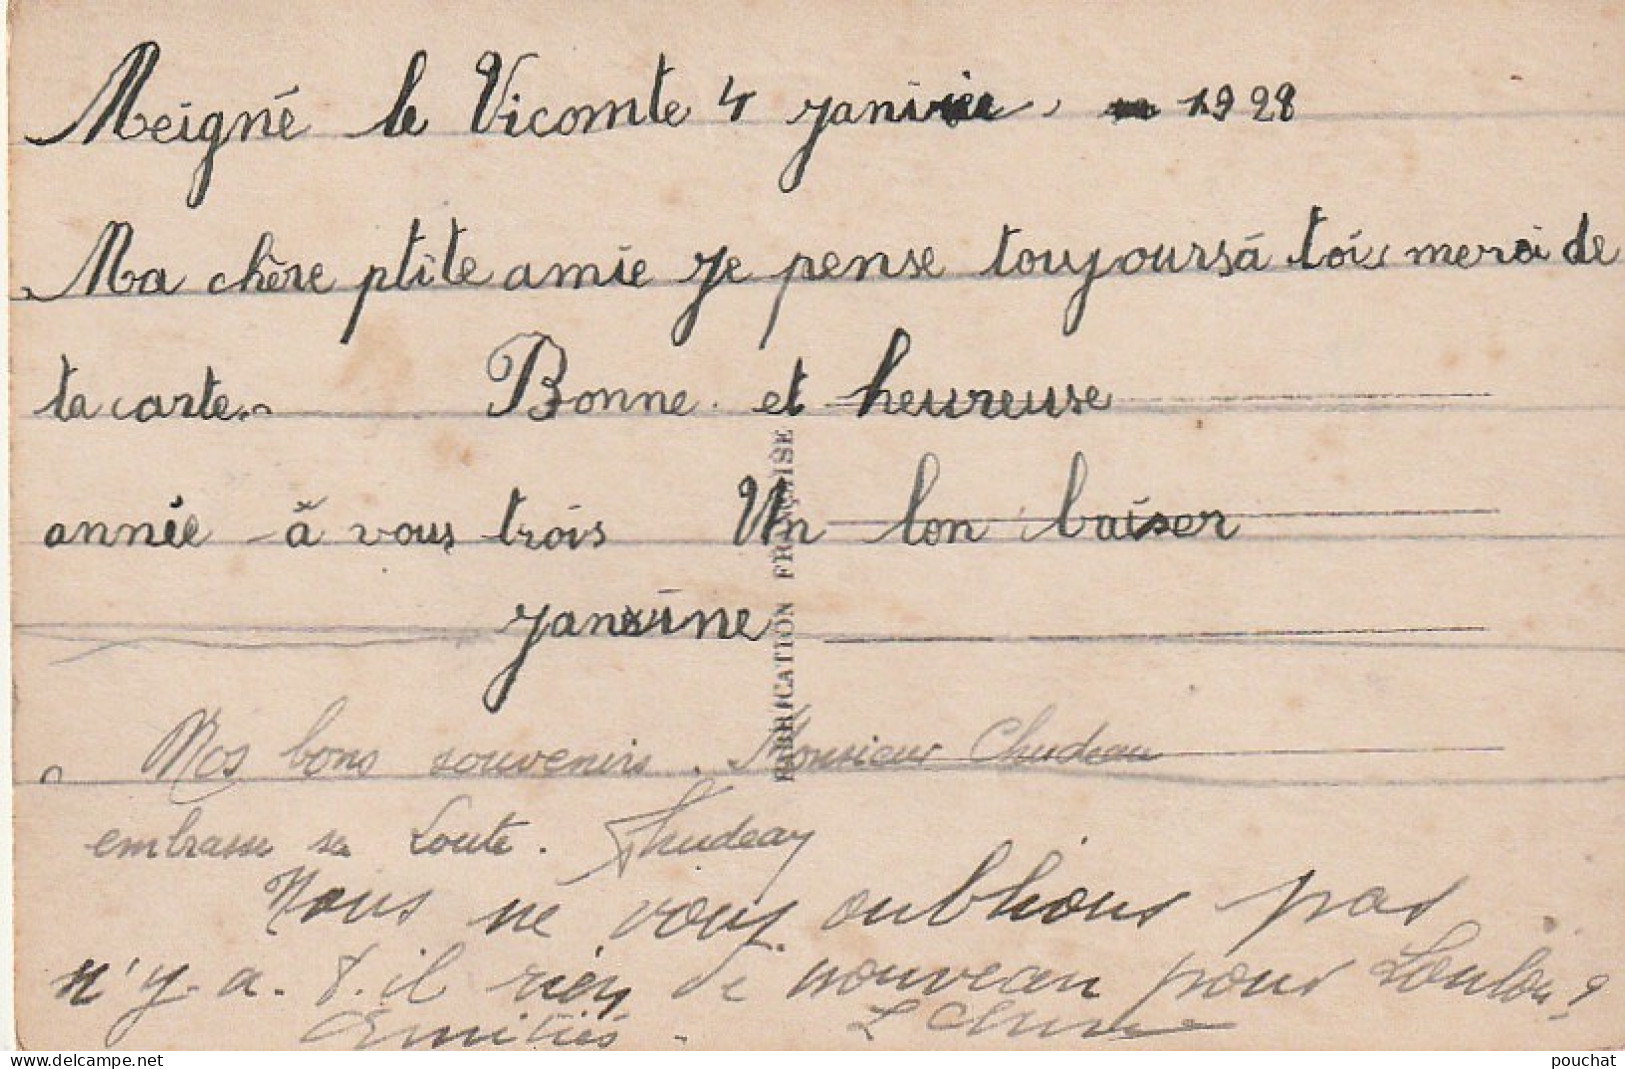 Meigné le Vicomte 4 janvier 1928
Ma chère ptite amie je pense toujours à toi merci de
ta carte. Bonne et heureuse
année à vous trois Un bon baiser
Janine
Mos bons souvenirs. Monsieur Chudeau
embrasse sa Loute. Chudeau
Nous ne vous oublions pas
n'y-a-t-il rien de nouveau pour Loulou ?
Amitiés - L
FABRICATION FRANÇAISE
pouchat